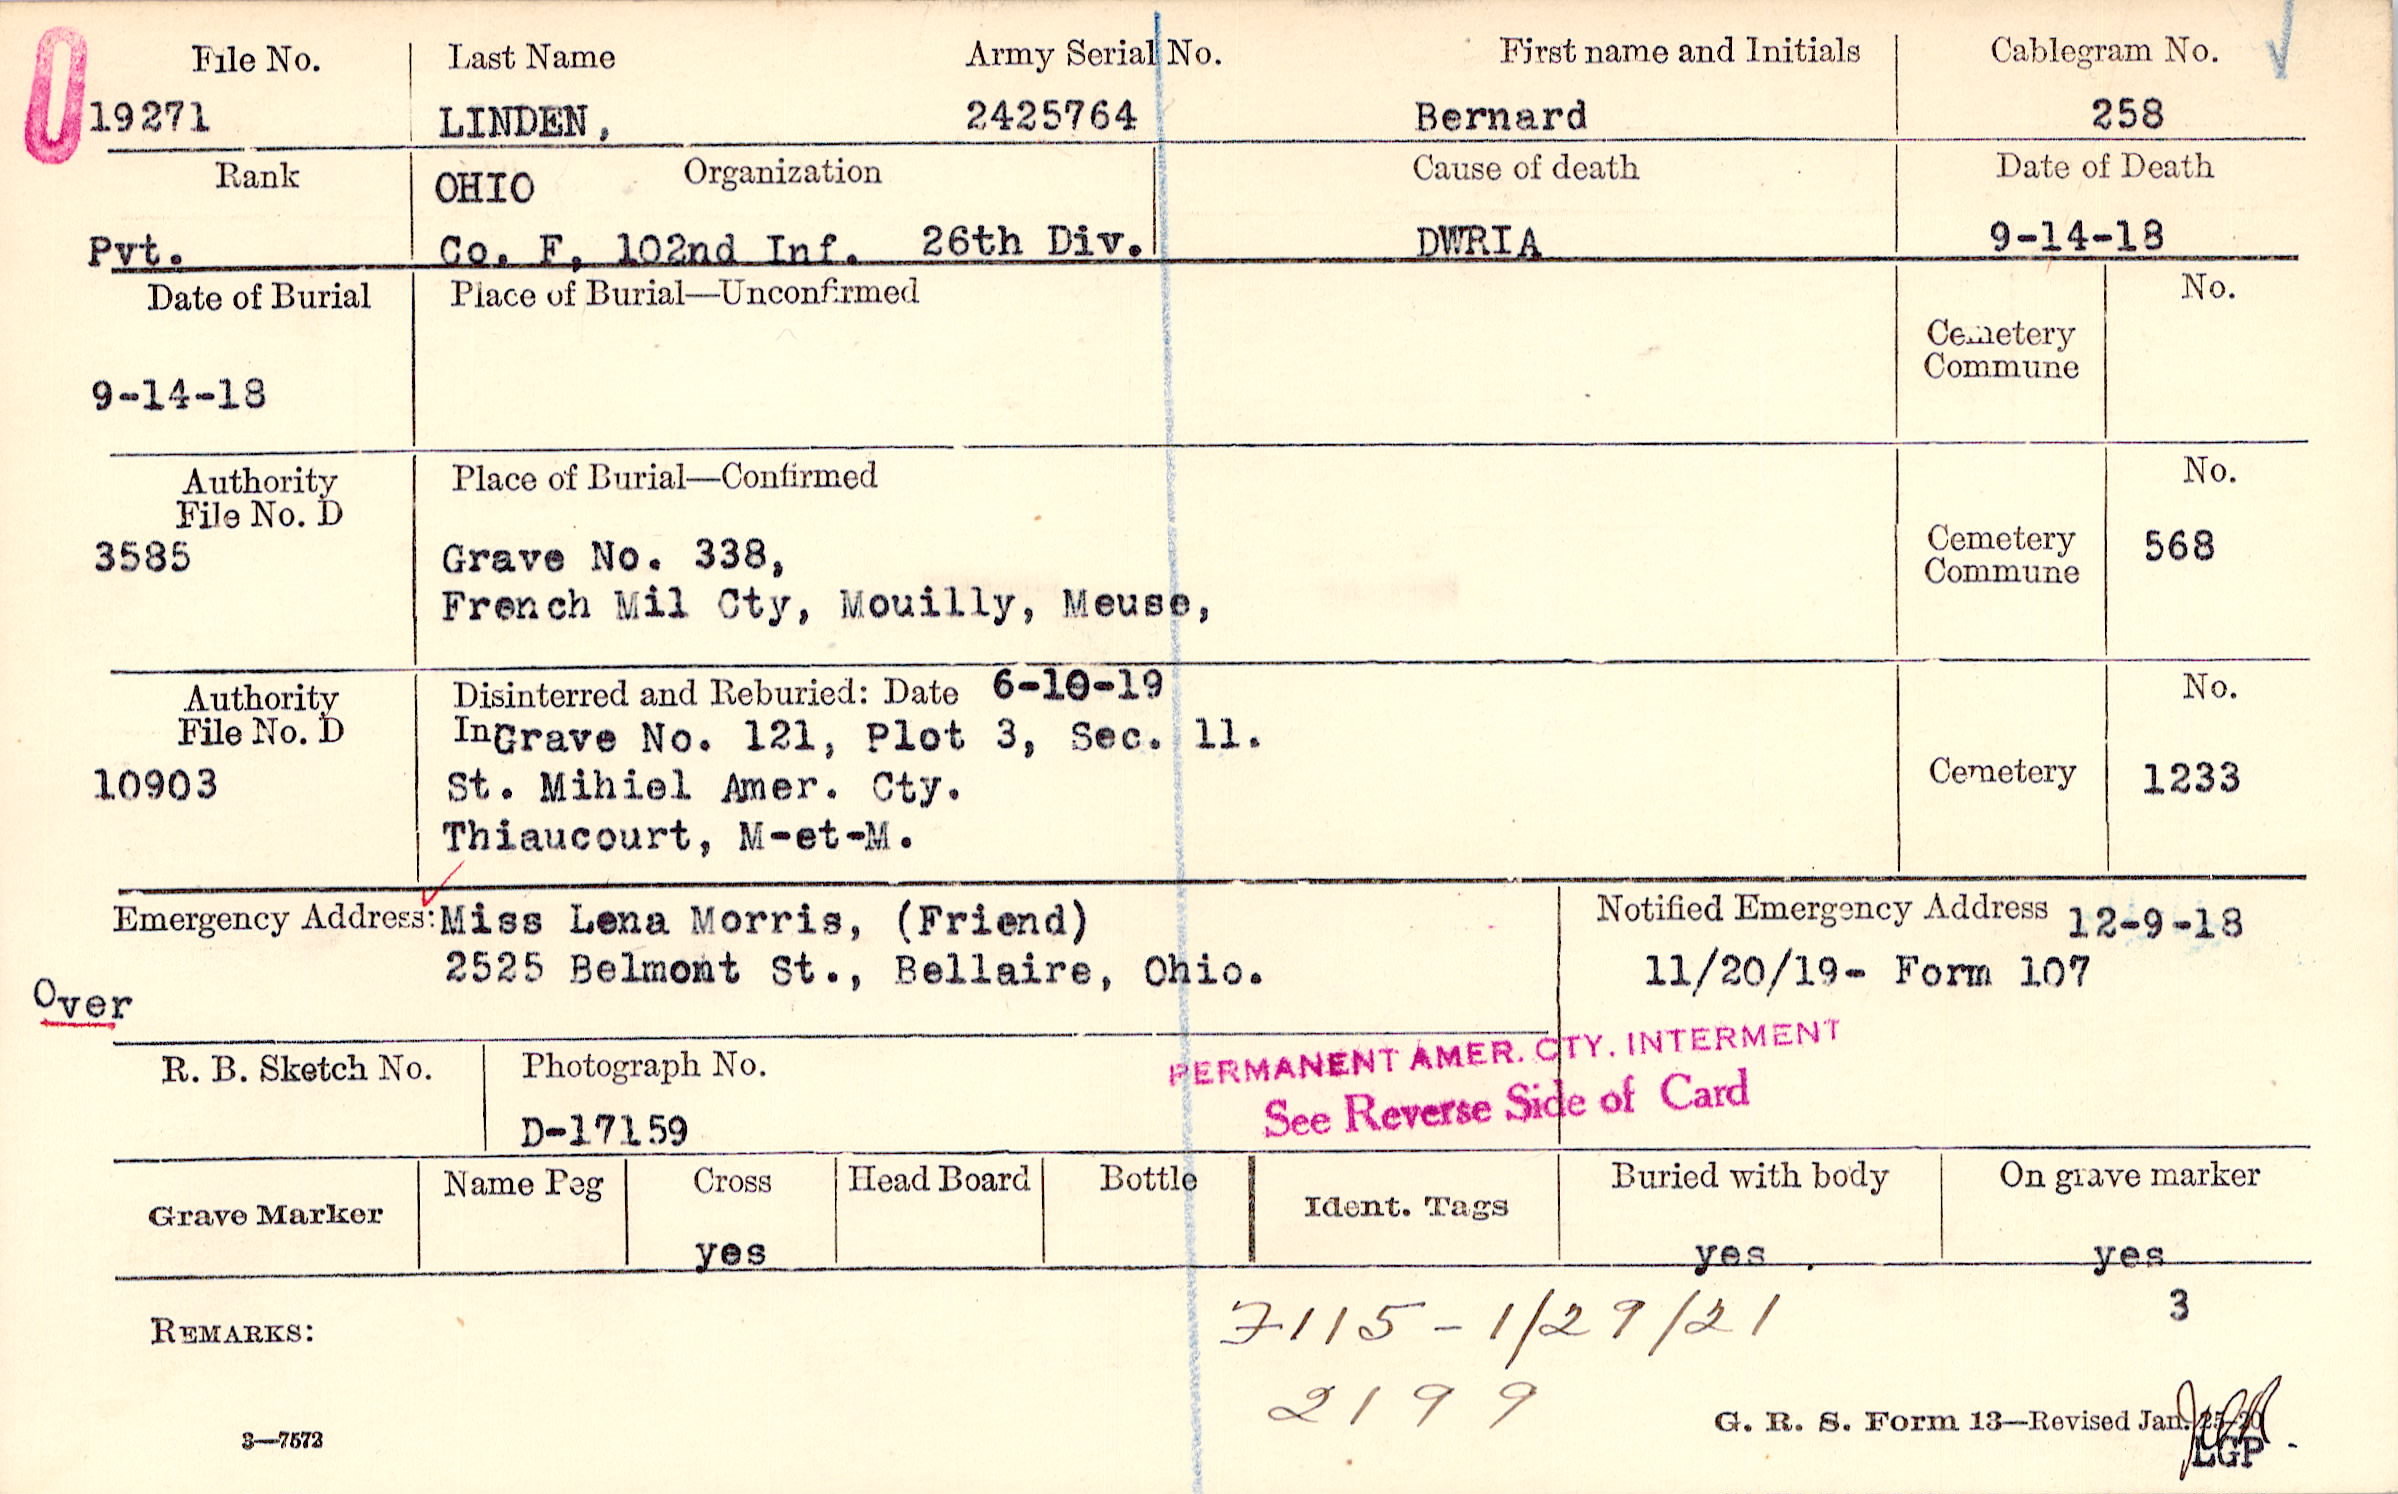 File No. Last Name Army Serial No. First name and Initials Cablegram No.
19271 LINDEN, 2425764 Bernard 258
Rank OHIO Organization Cause of death Date of Death
Pvt. Co. F, 102nd Inf. 26th Div. DWRIA 9-14-18
Date of Burial Place of Burial—Unconfirmed No.
Cemetery
Commune
9-14-18
Authority Place of Burial—Confirmed No.
File No. D
3585 Grave No. 338, Cemetery 568
Commune
French Mil Cty, Mouilly, Meuse,
Authority Disinterred and Reburied: Date 6-10-19 No.
File No. D In Grave No. 121, Plot 3, Sec. 11.
10903 St. Mihiel Amer. Cty. Cemetery 1233
Thiaucourt, M-et-M.
Emergency Address: Miss Lena Morris, (Friend) Notified Emergency Address 12-9-18
2525 Belmont St., Bellaire, Ohio. 11/20/19- Form 107
Over
R. B. Sketch No. Photograph No. PERMANENT AMER. CTY. INTERMENT
D-17159 See Reverse Side of Card
Grave Marker Name Peg Cross Head Board Bottle Ident. Tags Buried with body On grave marker
yes yes yes
REMARKS: 7115-1/29/21 3
2199
3—7573 G. R. S. Form 13—Revised Jan. 25-20
LGP